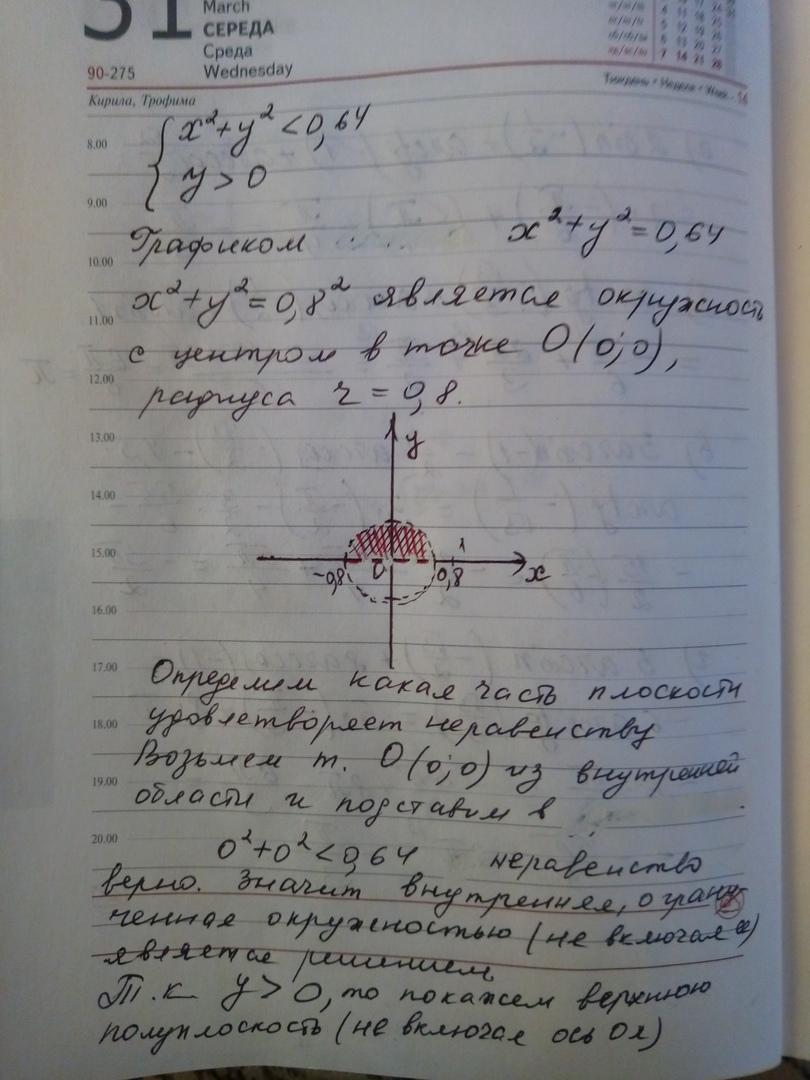 31
March
СЕРЕДА
Среда
Wednesday
90-275
Тиждень • Неделя • Week - 14
Кирила, Трофима
8.00
x²+y²<0,64
y>0
9.00
Графиком x²+y²=0,64
10.00
x²+y²=0,8² является окружность
11.00
с центром в точке O(0;0),
12.00
радиуса r=0,8.
13.00
y
14.00
15.00
-0,8 0 0,8 1 x
16.00
17.00
Определим какая часть плоскости
18.00
удовлетворяет неравенству
Возьмем т. O(0;0) из внутренней
19.00
области и подставим в
20.00
0²+0²<0,64 неравенство
верно. Значит внутренняя, ограни-
ченная окружностью (не включая ее)
является решением
Т.к y>0, то покажем верхнюю
полуплоскость (не включая ось Ox)